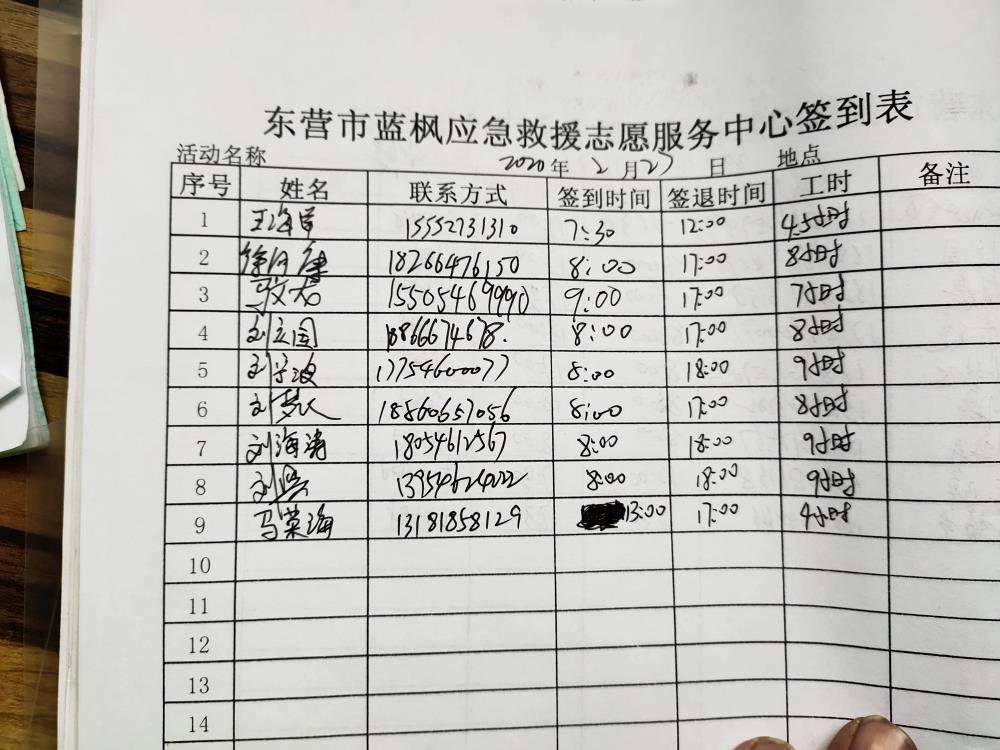 东营市蓝枫应急救援志愿服务中心签到表
活动名称 2020年2月27日 地点
序号 姓名 联系方式 签到时间 签退时间 工时 备注
1 王海军 15552731310 7:30 12:00 4.5小时
2 18266476150 8:00 17:00 8小时
3 15505469990 9:00 17:00 7小时
4 刘立国 18866674678. 8:00 17:00 8小时
5 刘宁波 17754600077 8:00 18:00 9小时
6 刘 18860657056 8:00 17:00 8小时
7 刘海涛 18054612567 8:00 18:00 9小时
8 刘 13954624022 8:00 18:00 9小时
9 马荣海 13181858129 13:00 17:00 4小时
10
11
12
13
14